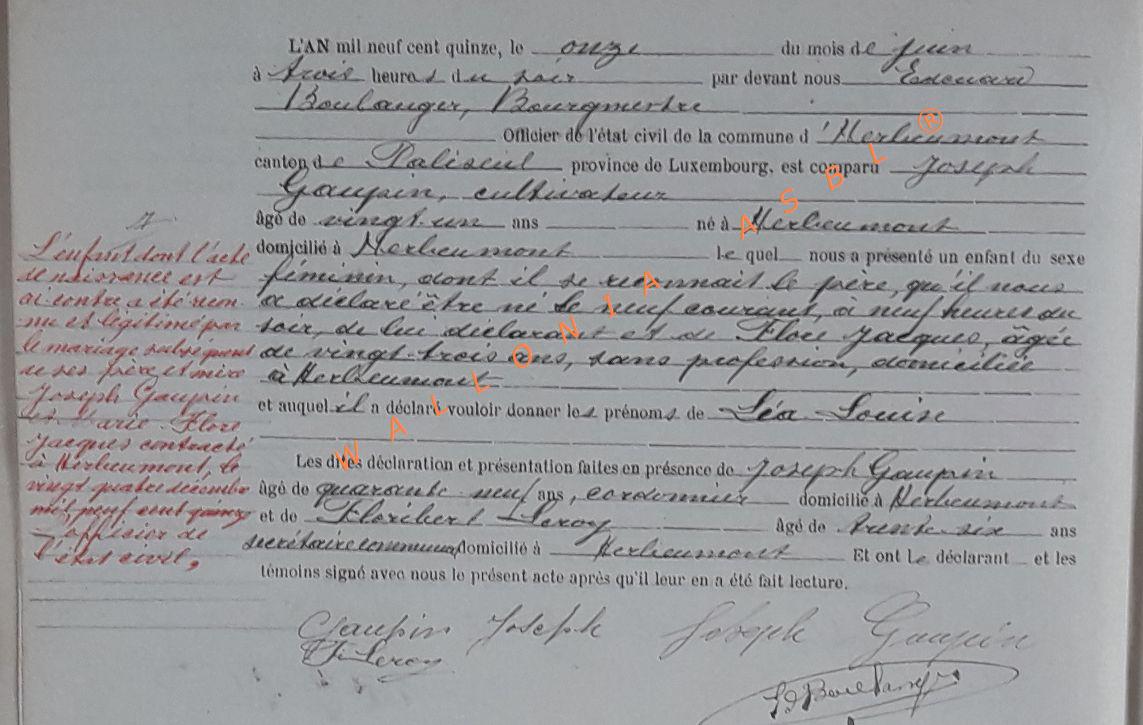 L'AN mil neuf cent quinze, le onze du mois de juin
à trois heures du soir par devant nous Edouard
Boulanger, Bourgmestre
Officier de l'état civil de la commune d'Herbeumont
canton de Paliseul province de Luxembourg, est comparu Joseph
Gaupin, cultivateur
âgé de vingt-un ans né à Herbeumont
domicilié à Herbeumont lequel nous a présenté un enfant du sexe
féminin, dont il se reconnait le père, qu'il nous
a déclaré être né le neuf courant, à neuf heures du
soir, de lui déclarant et de Flore Jacques, âgée
de vingt-trois ans, sans profession, domiciliée
à Herbeumont
et auquel il a déclaré vouloir donner les prénoms de Léa Louise
Les dites déclaration et présentation faites en présence de Joseph Gaupin
âgé de quarante-neuf ans, cordonnier domicilié à Herbeumont
et de Floribert Leroy âgé de trente-six ans
secrétaire communal domicilié à Herbeumont Et ont le déclarant et les
témoins signé avec nous le présent acte après qu'il leur en a été fait lecture.
L'enfant dont l'acte
de naissance est
ci contre a été recon
nu et légitimé par
le mariage subséquent
de ses père et mère
Joseph Gaupin
et Marie Flore
Jacques contracté
à Herbeumont, le
vingt quatre décembre
mil neuf cent quinze
L'officier de
l'état civil,
Gaupin Joseph Joseph Gaupin
Fl. Leroy
Ed Boulanger
WALLONIA ASBL ®